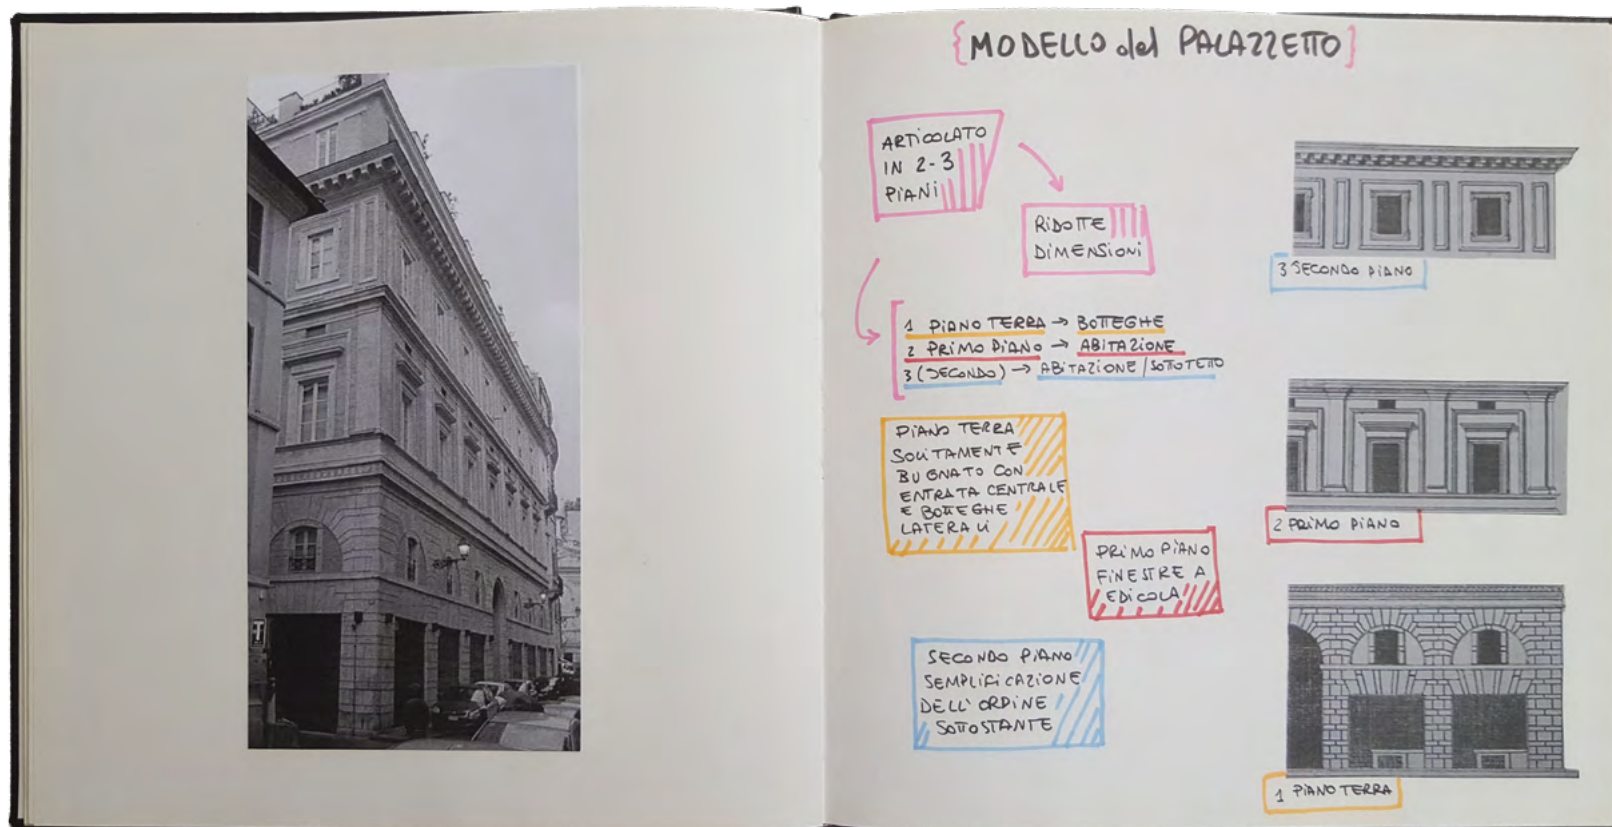 {MODELLO del PALAZZETTO]
ARTICOLATO
IN 2-3
PIANI
RIDOTTE
DIMENSIONI
1 PIANO TERRA → BOTTEGHE
2 PRIMO PIANO → ABITAZIONE
3 (SECONDO) → ABITAZIONE/SOTTOTETTO
PIANO TERRA
SOLITAMENTE
BUGNATO CON
ENTRATA CENTRALE
E BOTTEGHE
LATERALI
PRIMO PIANO
FINESTRE A
EDICOLA
SECONDO PIANO
SEMPLIFICAZIONE
DELL'ORDINE
SOTTOSTANTE
3 SECONDO PIANO
2 PRIMO PIANO
1 PIANO TERRA